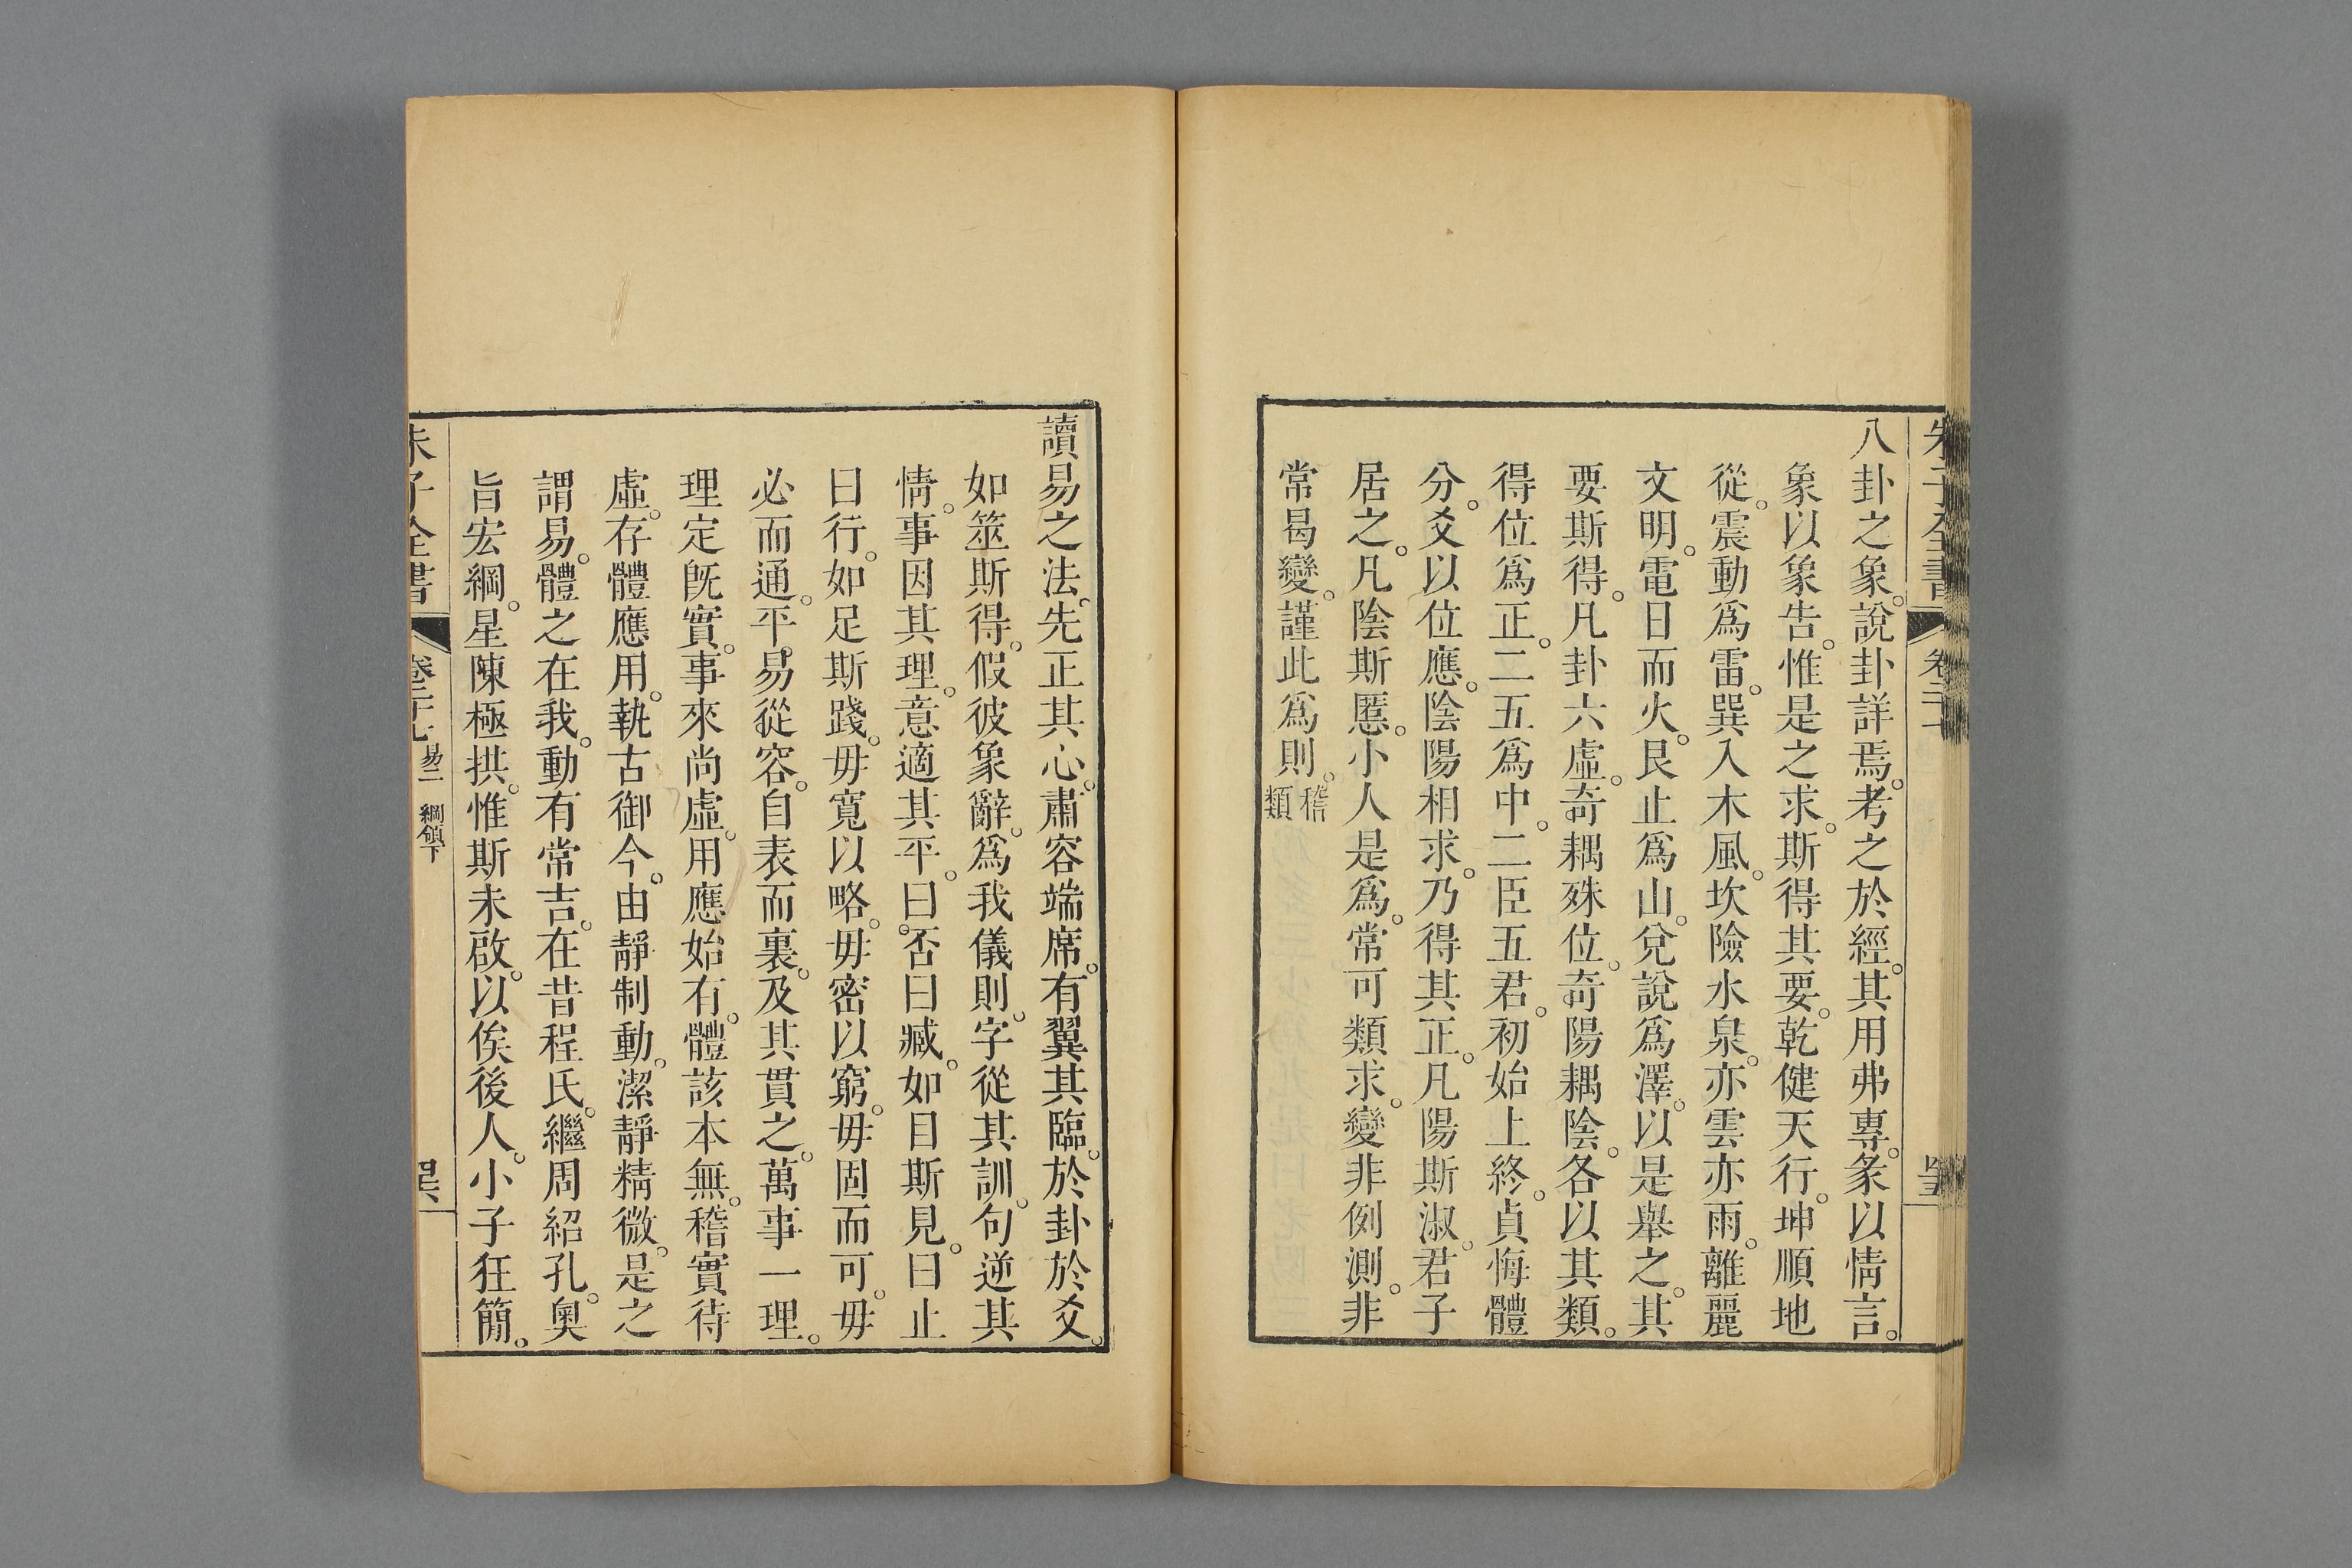 八卦之象。說卦詳焉。考之於經。其用弗專。彖以情言。
象以象告。惟是之求。斯得其要。乾健天行。坤順地
從。震動爲雷。巽入木風。坎險水泉。亦雲亦雨。離麗
文明。電日而火。艮止爲山。兌說爲澤。以是舉之。其
要斯得。凡卦六虛。奇耦殊位。奇陽耦陰。各以其類。
得位爲正。二五爲中。二臣五君。初始上終。貞悔體
分。爻以位應。陰陽相求。乃得其正。凡陽斯淑。君子
居之。凡陰斯慝。小人是爲。常可類求。變非例測。非
常曷變。謹此爲則。稽類
讀易之法。先正其心。肅容端席。有翼其臨。於卦於爻。
如筮斯得。假彼象辭。爲我儀則。字從其訓。句逆其
情。事因其理。意適其平。曰否曰臧。如目斯見。曰止
曰行。如足斯踐。毋寬以略。毋密以窮。毋固而可。毋
必而通。平易從容。自表而裏。及其貫之。萬事一理。
理定既實。事來尚虛。用應始有。體該本無。稽實待
虛。存體應用。執古御今。由靜制動。潔靜精微。是之
謂易。體之在我。動有常吉。在昔程氏。繼周紹孔。奧
旨宏綱。星陳極拱。惟斯未啟。以俟後人。小子狂簡。
子全書
易二 綱領下